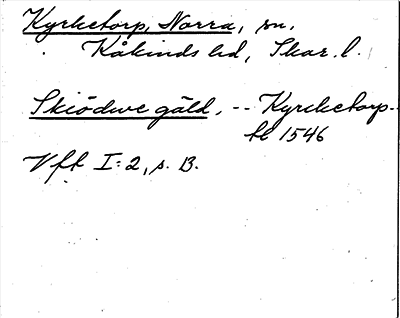 Kyrketorp, Norra, sn.
Kåkinds hd, Skar. l.
Skiödwe gäld, -- Kyrcketorp --
tl 1546
Vft I:2, s. 13.